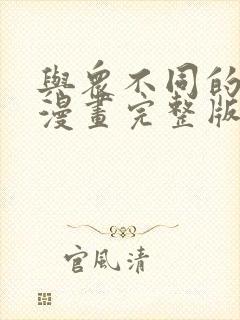 與衆不同的
漫畫完整版
官風清